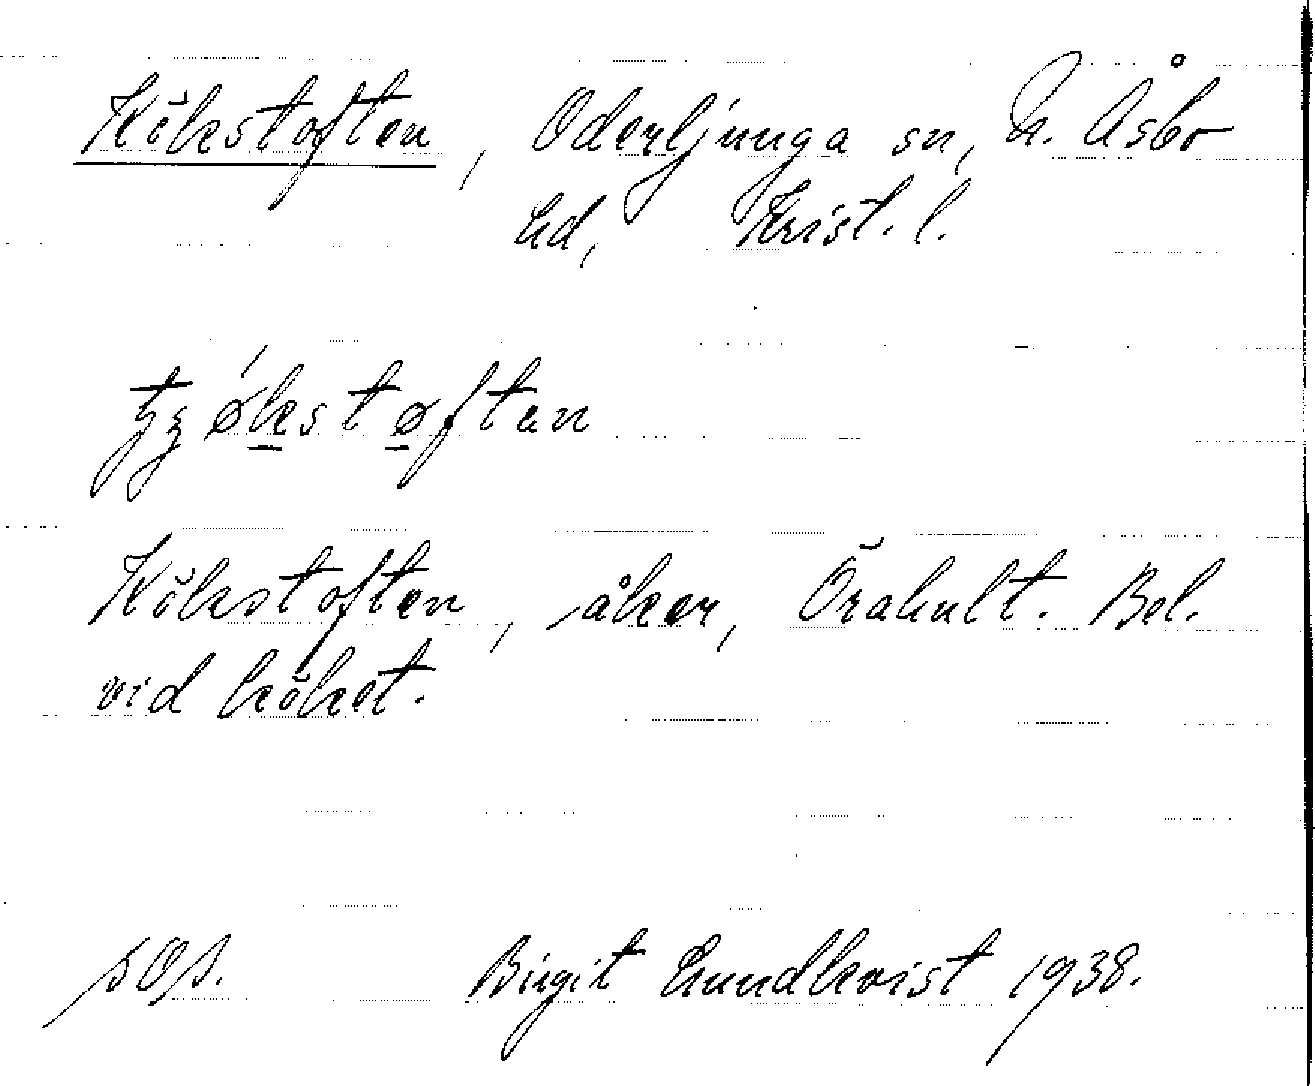 Kökstoften, Oderljunga sn, N. Åsbo
hd, Krist. l.
tʒǿkstøftan
Kökstoften, åker, Örahult. Bel.
vid köket.
SOS. Birgit Lundkvist 1938.